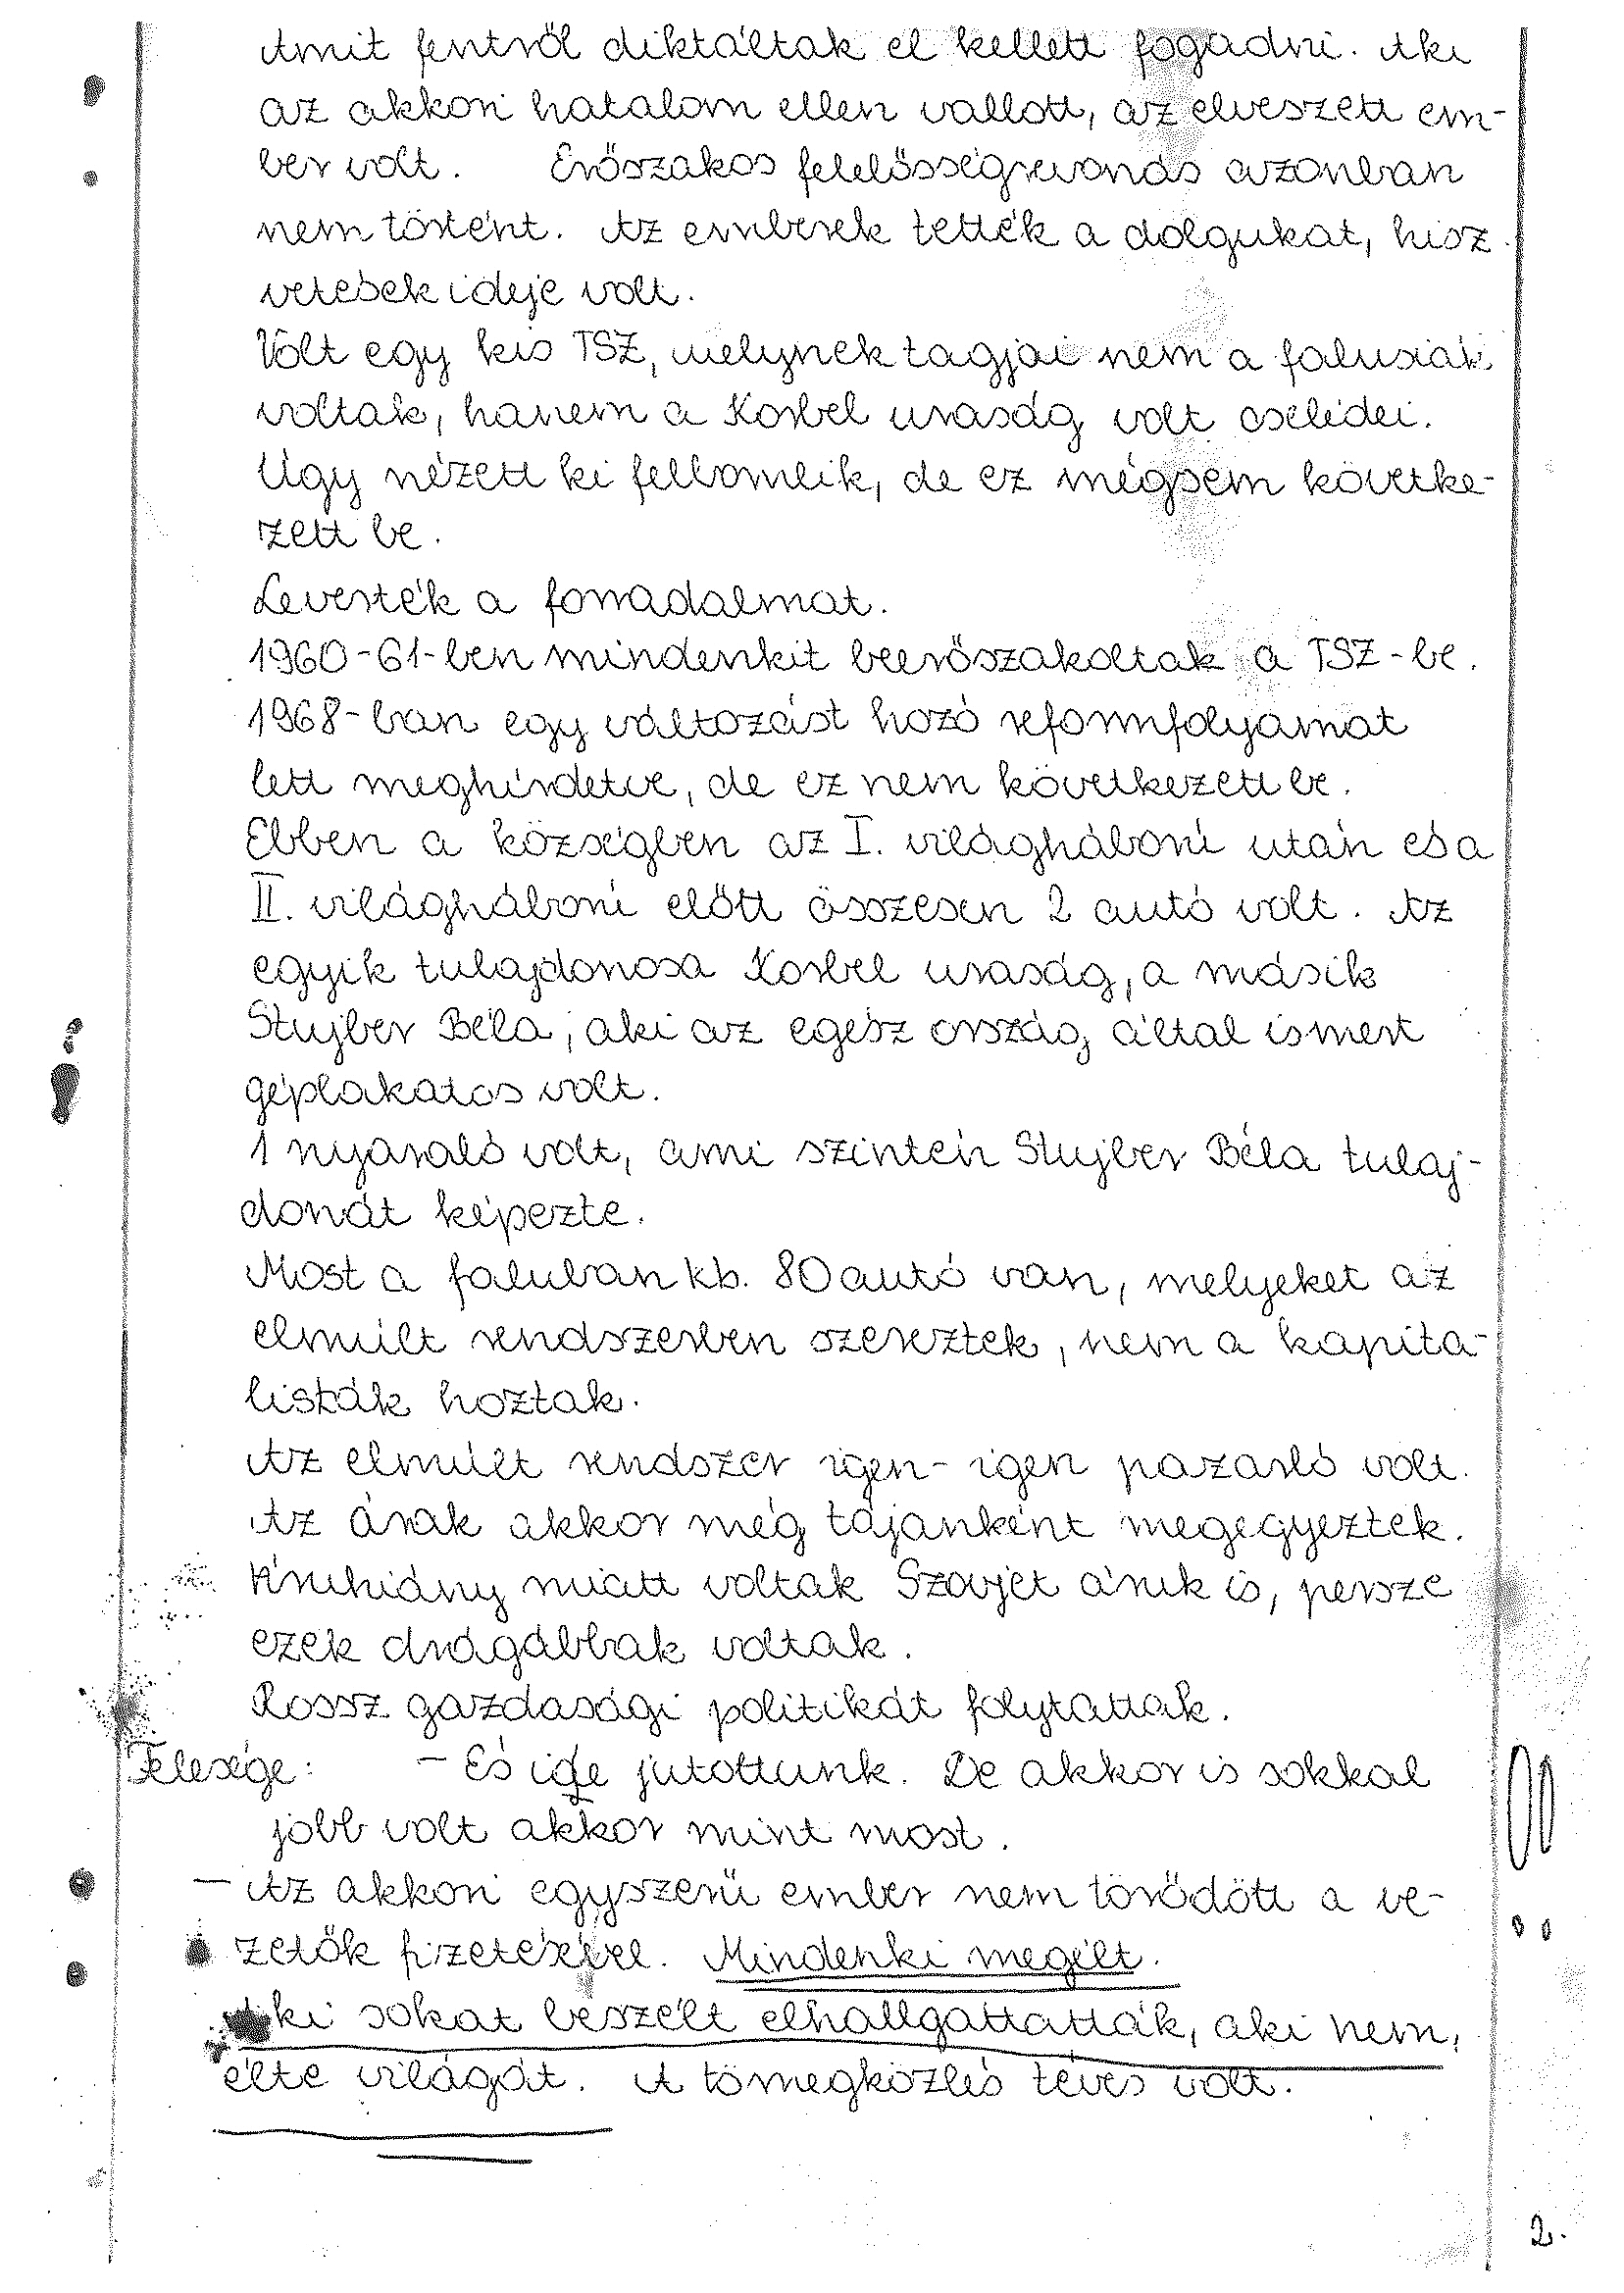 Amit fentről diktáltak el kellett fogadni. Aki
az akkori hatalom ellen vallott, az elveszett em-
ber volt. Erőszakos felelősségrevonás azonban
nem történt. Az emberek tették a dolgukat, hisz
vetések ideje volt.
Volt egy kis TSZ, melynek tagjai nem a falusiak
voltak, hanem a Korbel uraság volt cselédei.
Úgy nézett ki felbomlik, de ez mégsem követke-
zett be.
Leverték a forradalmat.
1960-61-ben mindenkit beerőszakoltak a TSZ-be.
1968-ban egy változást hozó reformfolyamat
lett meghirdetve, de ez nem következett be.
Ebben a községben az I. világháború után és a
II. világháború előtt összesen 2 autó volt. Az
egyik tulajdonosa Korbel uraság, a másik
Stujber Béla, aki az egész ország által ismert
géplakatos volt.
1 nyaraló volt, ami szintén Stujber Béla tulaj-
donát képezte.
Most a faluban kb. 80 autó van, melyeket az
elmúlt rendszerben szereztek, nem a kapita-
listák hoztak.
Az elmúlt rendszer igen-igen pazarló volt.
Az árak akkor még tájanként megegyeztek.
Áruhiány miatt voltak Szovjet áruk is, persze
ezek drágábbak voltak.
Rossz gazdasági politikát folytattak.
Felesége: - És ide jutottunk. De akkor is sokkal
jobb volt akkor mint most.
- Az akkori egyszerű ember nem törődött a ve-
zetők fizetésével. Mindenki megélt.
Aki sokat beszélt elhallgattatták, aki nem,
élte világát. A tömegközlés téves volt.
2.